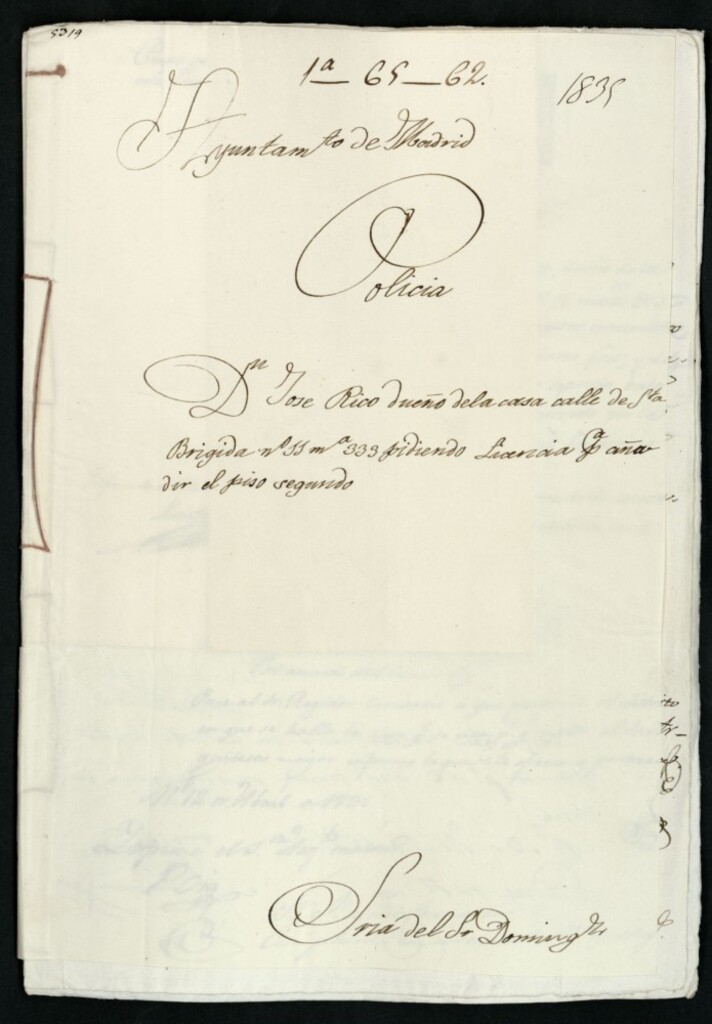 5319
1ª 65 62.
1835
Ayuntam.to de Madrid
Policia
Dn Jose Rico dueño dela casa calle de Sta
Brigida nº 11 mª 333 pidiendo Licencia pª aña
dir el piso segundo
Sria del Sr Doming.